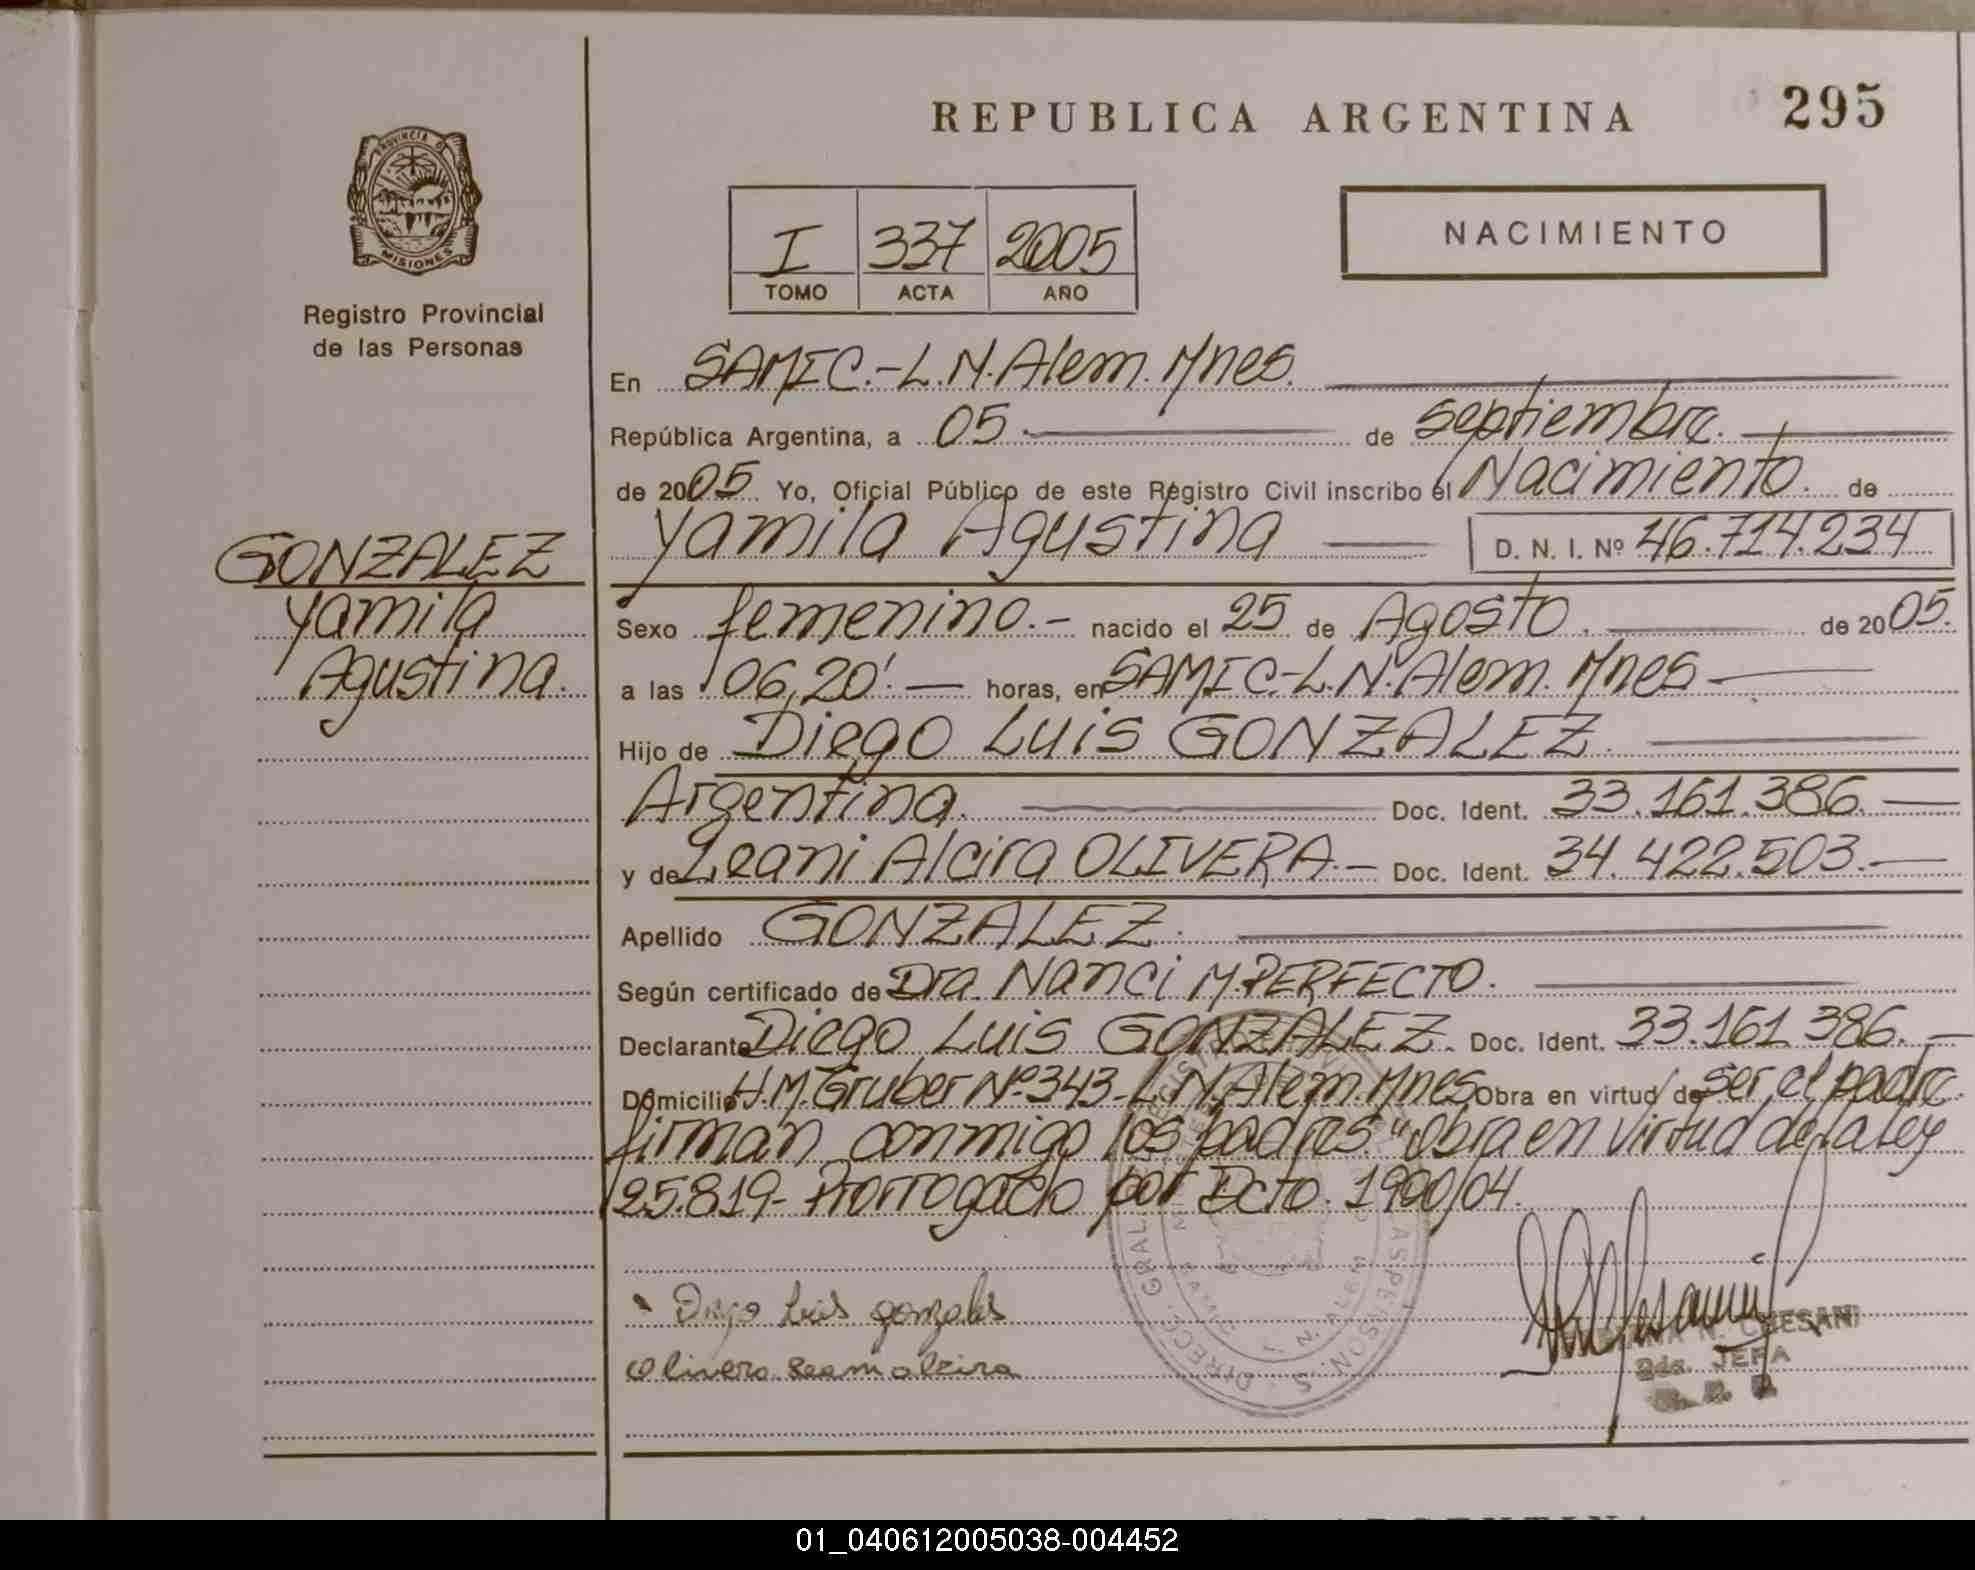 REPUBLICA ARGENTINA
295
PROVINCIA D
MISIONES
Registro Provincial
de las Personas
I 337 2005
TOMO ACTA AÑO
NACIMIENTO
En SAMIC.-L.N.Alem.Mnes.
República Argentina, a 05. de septiembre.
de 2005 Yo, Oficial Público de este Registro Civil inscribo el Nacimiento. de
Yamila Agustina D. N. I. Nº 46.714.234
GONZALEZ
Yamila
Agustina.
Sexo femenino.- nacido el 25 de Agosto. de 2005.
a las 06,20'. — horas, en SAMIC.-L.N.Alem.Mnes
Hijo de Diego Luis GONZALEZ.
Argentina. Doc. Ident. 33.161.386.
y de Leani Alcira OLIVERA.- Doc. Ident. 34.422.503.
Apellido GONZALEZ.
Según certificado de Dra. Nanci M.PERFECTO.
Declarante Diego Luis GONZALEZ. Doc. Ident. 33.161.386.
Domicilio H.M.Gruber Nº343-L.N.Alem.Mnes Obra en virtud de ser el padre
firman conmigo los padres. "obra en virtud de la ley
25.819- Prorrogado por Dcto. 1900/04.
Diego Luis gonzales
Olivera Leani alcira
N. CHESANI
JEFA
01_040612005038-004452